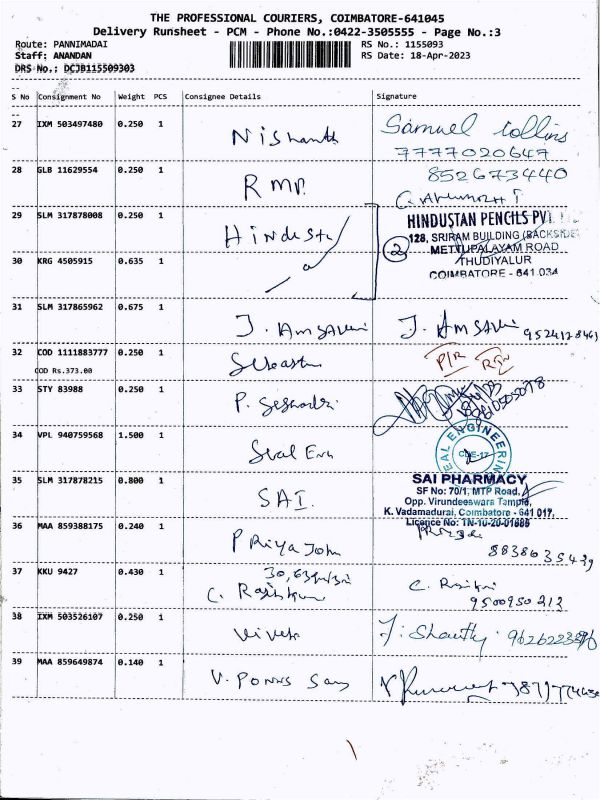 THE PROFESSIONAL COURIERS, COIMBATORE-641045
Delivery Runsheet - PCM - Phone No.:0422-3505555 - Page No.:3
Route: PANNIMADAI
Staff: ANANDAN
DRS No.: DCJB115509303
RS No.: 1155093
RS Date: 18-Apr-2023
S No Consignment No Weight PCS Consignee Details Signature
27 IXM 503497480 0.250 1 Nishanth Samuel Collins
7777020647
28 GLB 11629554 0.250 1 RMP. 852673440
29 SLM 317878008 0.250 1 Hindustan
HINDUSTAN PENCILS PVT. LTD
128, SRIRAM BUILDING (BACKSIDE)
METTUPALAYAM ROAD
THUDIYALUR
COIMBATORE - 641 034
2
30 KRG 4505915 0.635 1
31 SLM 317865962 0.675 1 J. Amsaveni J. Amsaveni
32 COD 1111883777 0.250 1 Sebastin
COD Rs.373.00
33 STY 83988 0.250 1 P. Seshadri
34 VPL 940759568 1.500 1 Seal Eng
SEAL ENGINEERING
CBE-17
35 SLM 317878215 0.800 1 SAI.
SAI PHARMACY
SF No: 70/1, MTP Road,
Opp. Virundeeswara Temple,
K. Vadamadurai, Coimbatore - 641 017.
Licence No: TN-10-20-01686
36 MAA 859388175 0.240 1 Priya John
37 KKU 9427 0.430 1 C. Rajkumar
9500950212
38 IXM 503526107 0.250 1 Vivek J. Shanthy
39 MAA 859649874 0.140 1 V. Ponns Samy